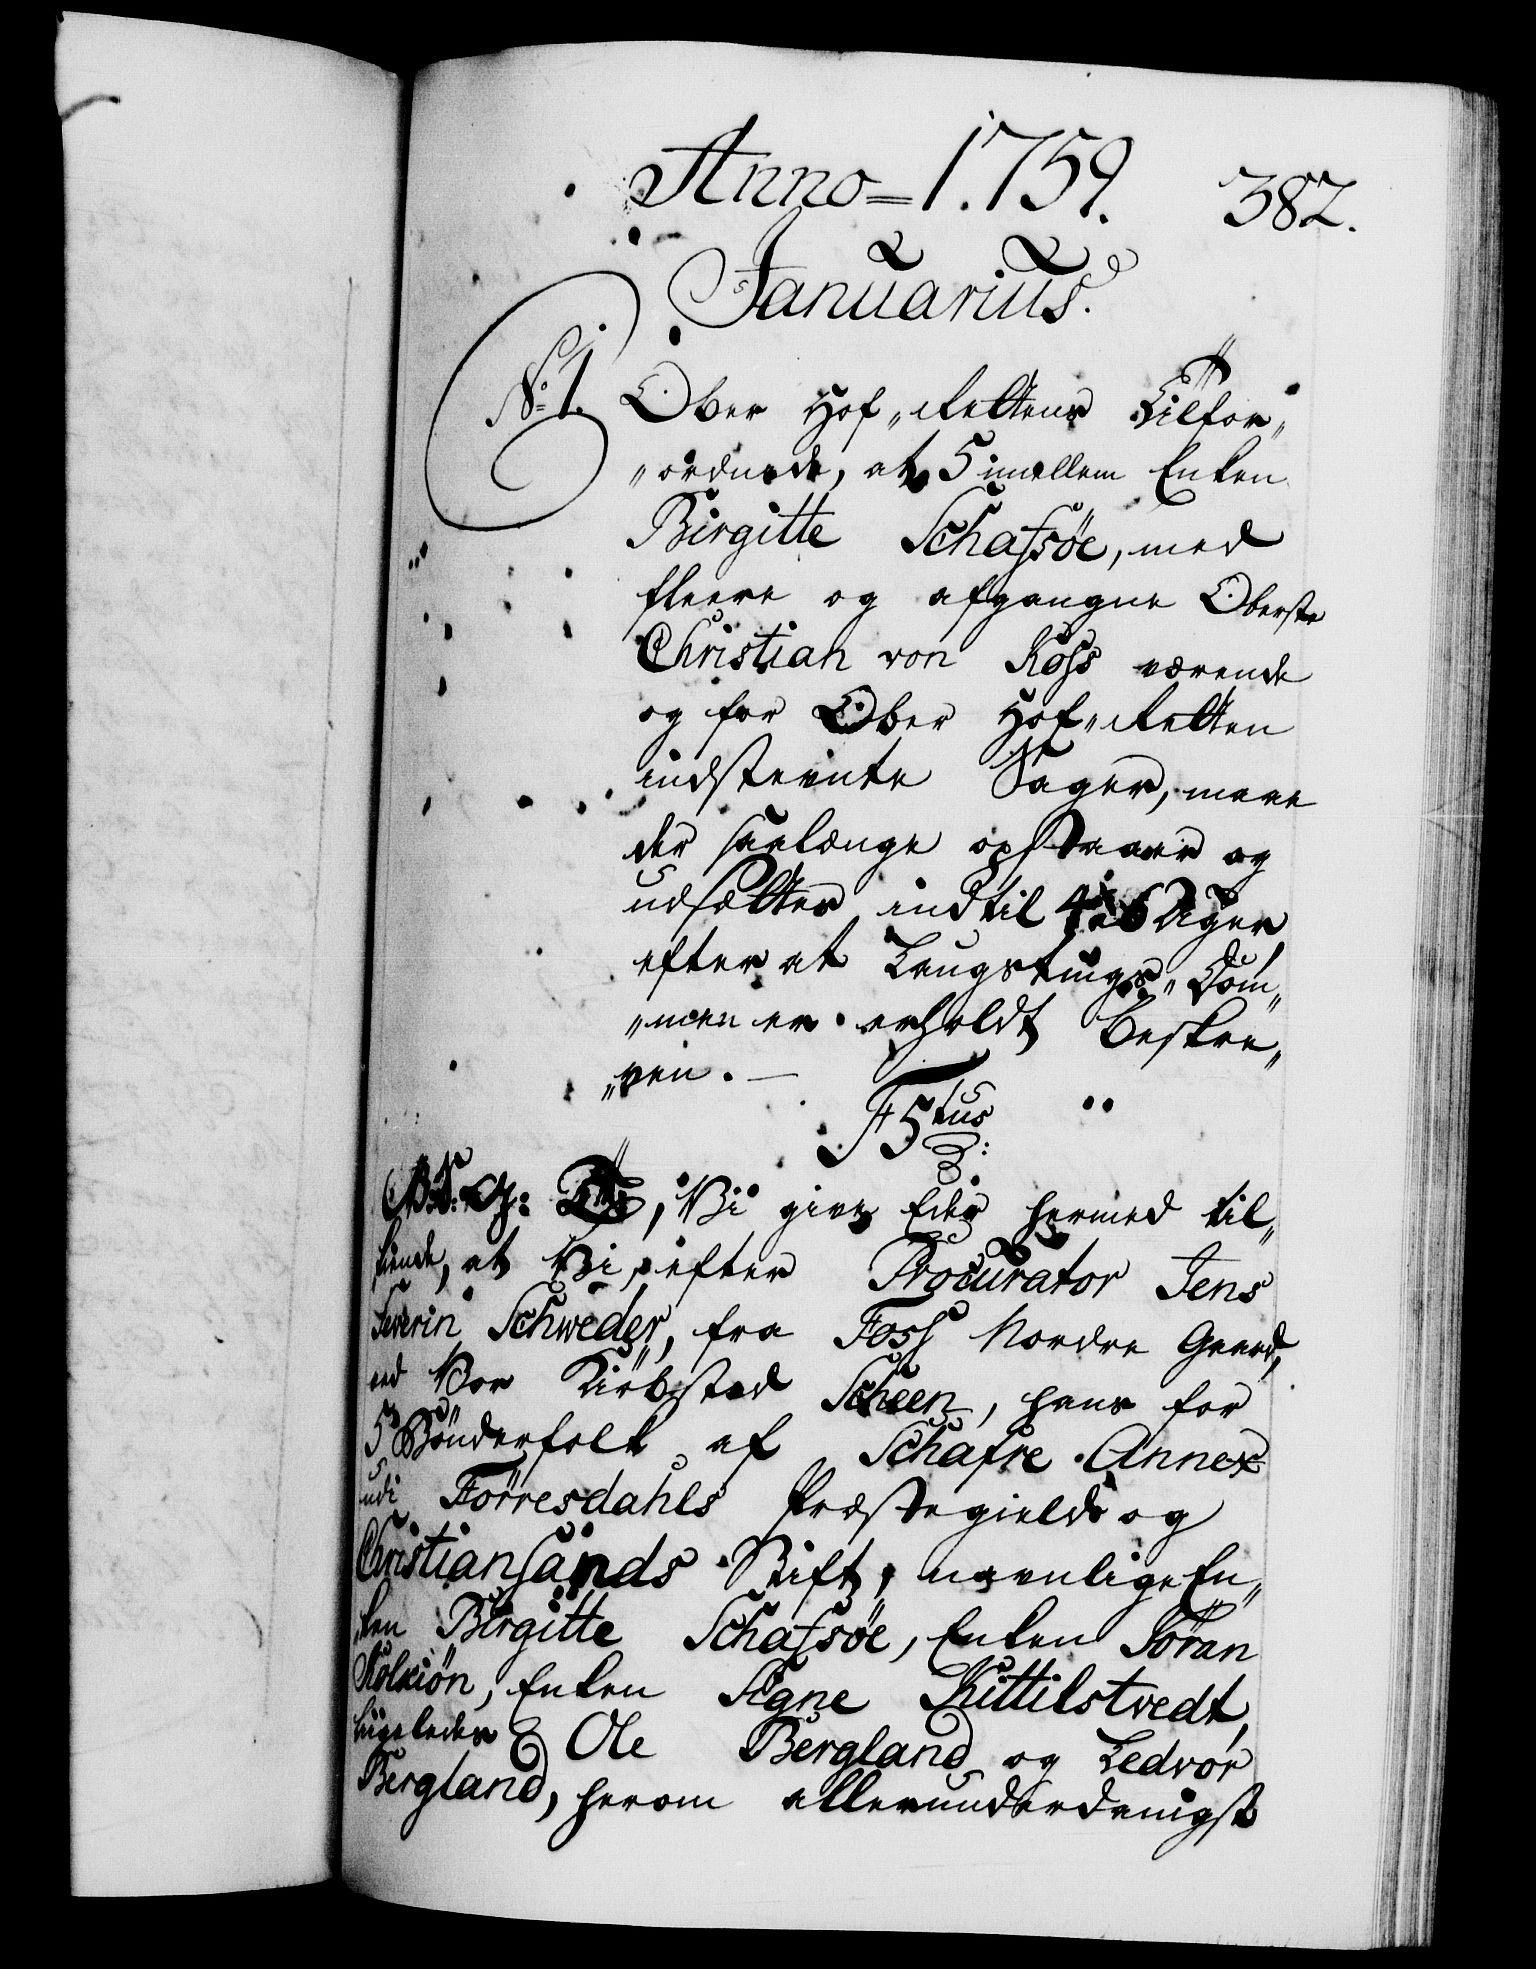 Anno = 1759.
382.
Januarius.
No. 1.
Ober Hof„Rettens Tilfor„
„ordnede, at 5 imellem Enken
Birgitte Schafsöe, med
fleere og afgangne Oberste
Christian von Koss værende
og for Ober Hof„Retten
indstevnte Sager, maae
der saalænge opstaaer og
udsættes indtil 4 a 6 Uger
efter at Laugstings„Dom„
„men er erholdt beskre„
„ven. —
F5tus
Vi give Eder hermed til„
kiende, at Vi, efter Procurator Jens
Severin Schweder, fra Foss Nordre Gaard,
ved Vor Kiöbstad Scheen, hans for
5 Bönderfolk af Schafse Annex
udi Förresdahls Præstegield og
Christiansands Stift, navnlig En„
„ken Birgitte Schafsöe, Enken Söran
Enken Signe Kittilstvedt,
ligeledes Ole Bergland og Ledvor
Bergland, herom allerunderdanigst